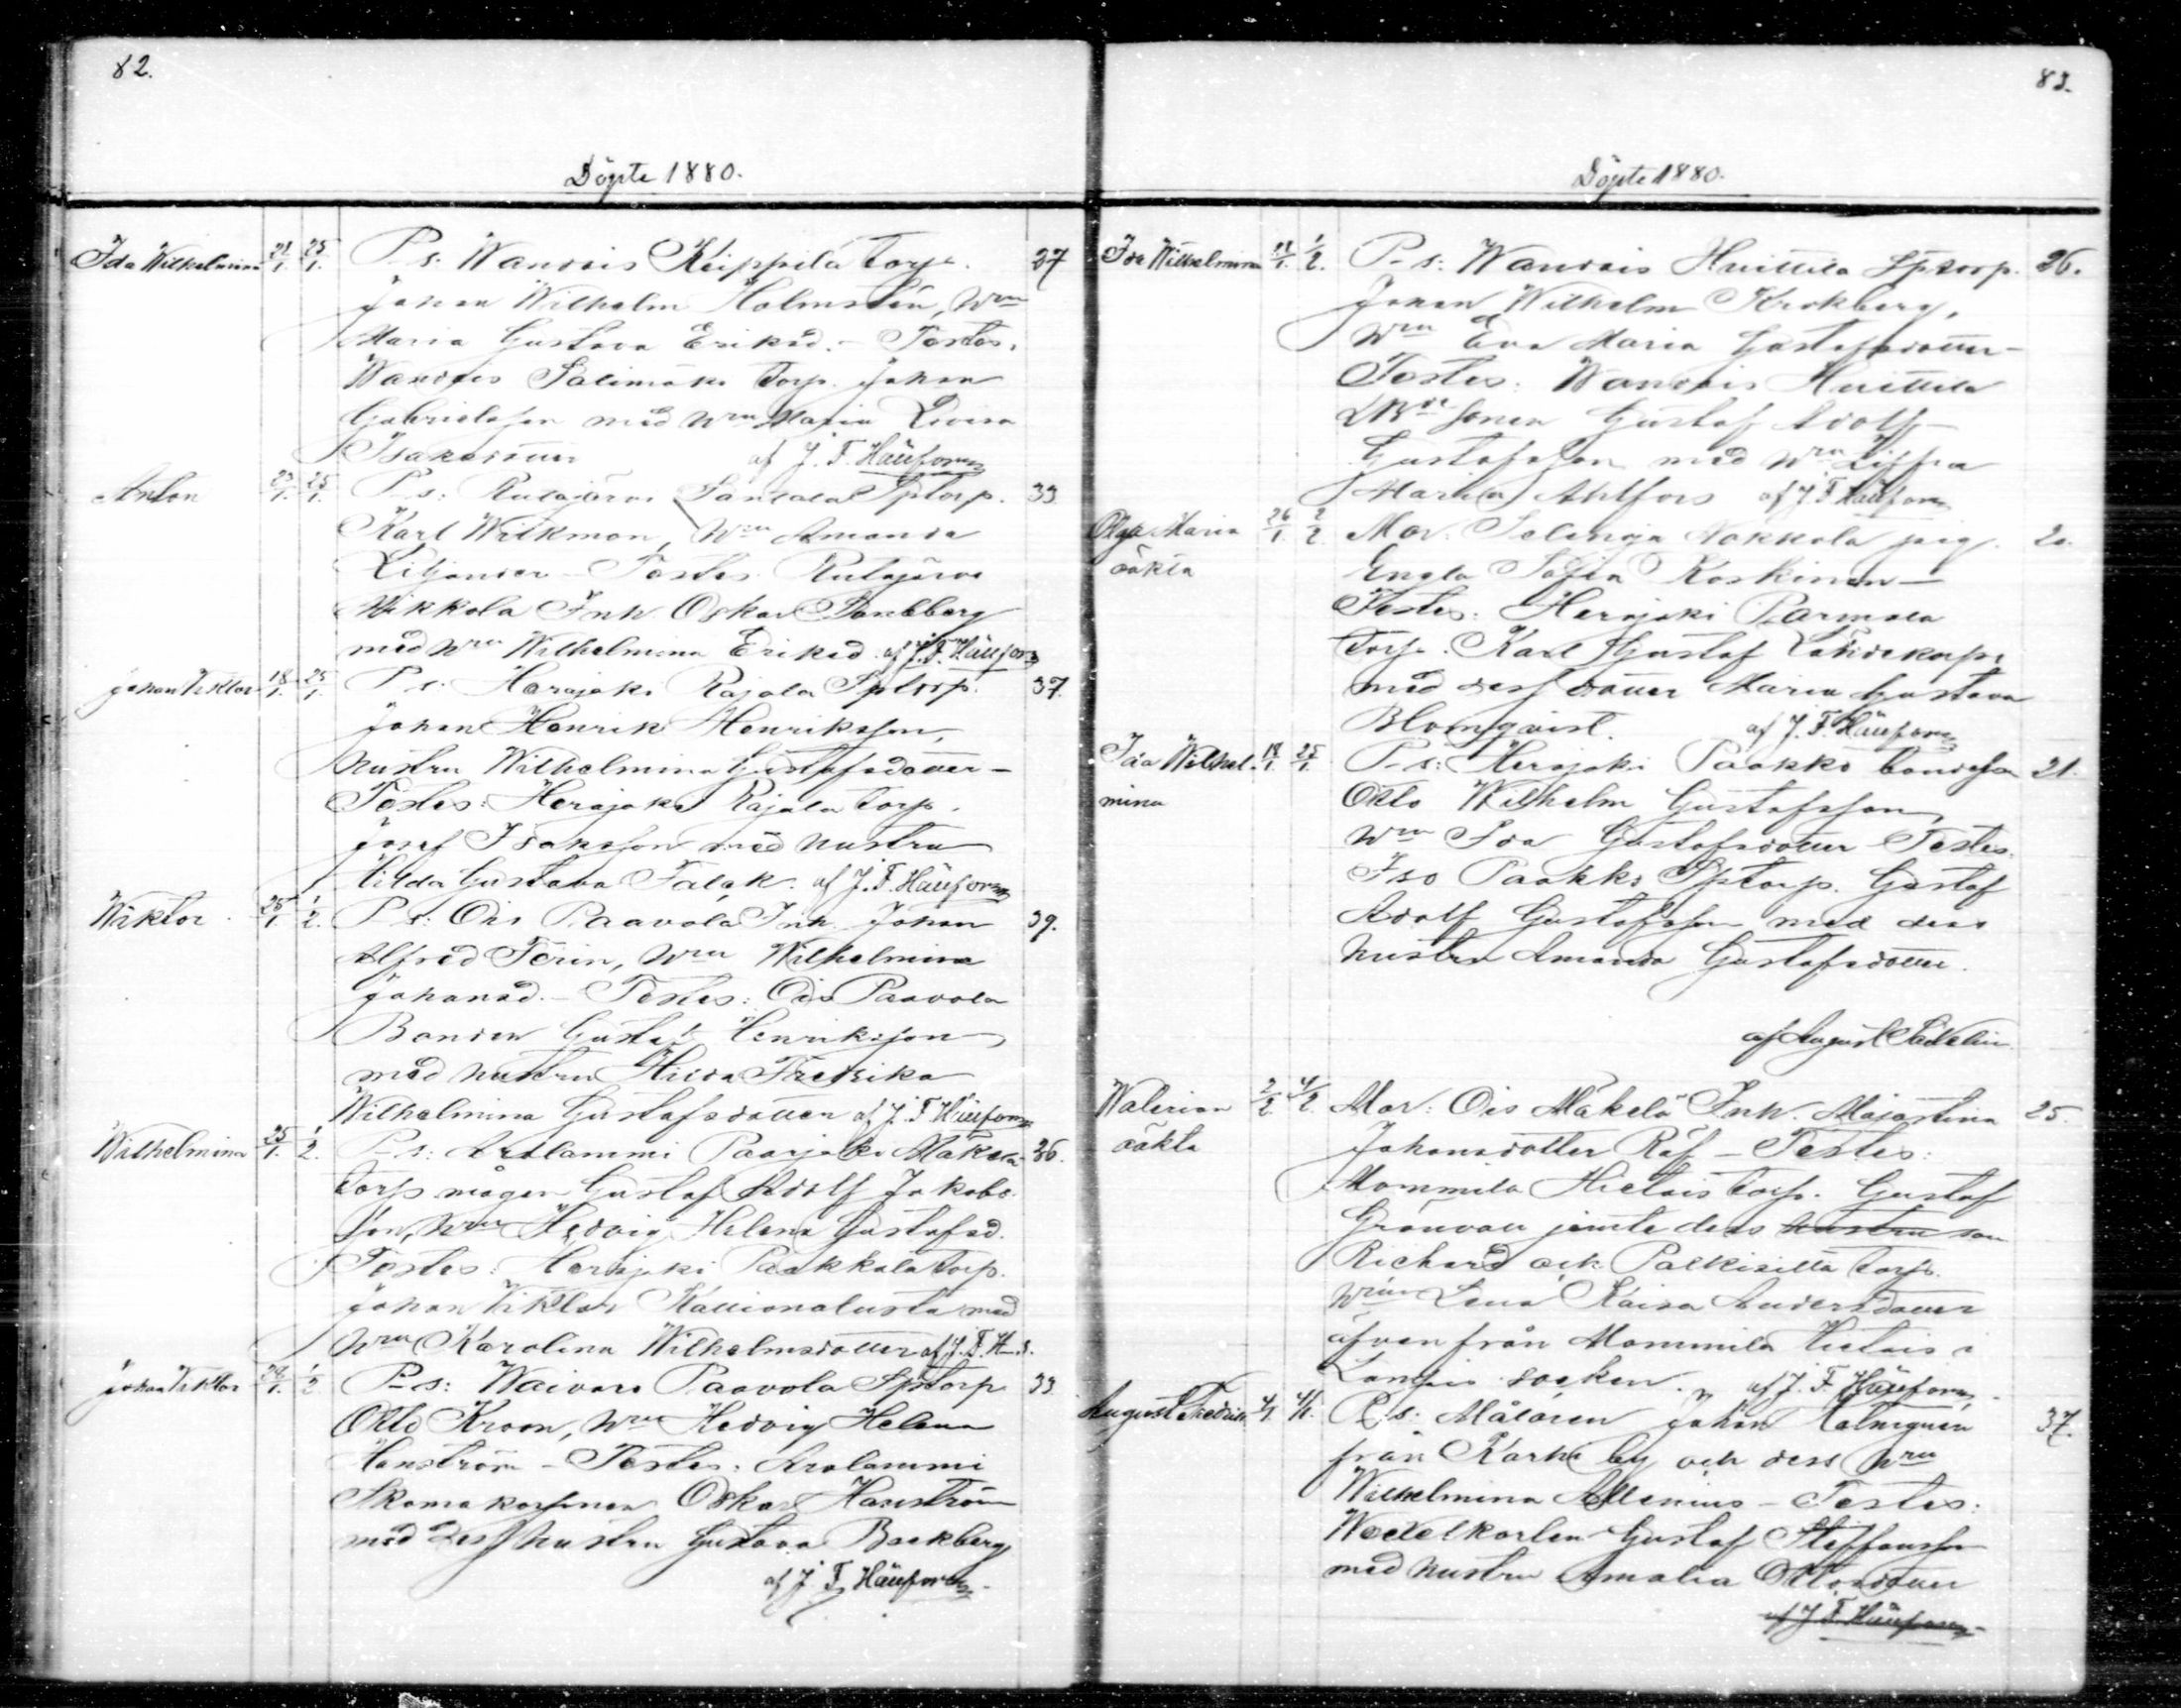 82.
Döpte 1880.
Ida Wilhelmina 21/1. 25/1. P-s: Wandois Keippilä torp. 27
Johan Wilhelm Holmstén, Hru
Maria Gustava Eriksd. - Testes:
Wandois Salimäki torp. Johan
Gabrielsson med Hru Maria Lovisa
Isaksdotter af J. F. Hällfors
Anton 23/1. 25/1. P-s: Rutajärvi Sptorp. 33
Karl Wikman, Hru Amanda
Liljander - Testes: Rutajärvi
Wikkola Inh. Oskar
med Hru Wilhelmina Eriksd. af J. F. Hällfors
Johan Viktor 18/1. 25/1. P-s: Herajoki Rajala Sptorp. 37.
Johan Henrik Henriksson,
hustru Wilhelmina Gustafsdotter -
Testes: Herajoki Rajala torp.
Josef Isaksson med hustru
Hilda Gustava Falák. af J. F. Hällfors
Wiktor 25/1. 1/2. P-s: Ois Paavola Inh. Johan 39.
Alfred Terin, Hru Wilhelmina
Johansd. - Testes: Ois Paavola
Bonden Gustaf Henriksson
med hustru Hilda Fredrika
Wilhelmina Gustafsdotter af J. F. Hällfors
Wilhelmina 25/1. 1/2. P-s: Arolammi Paarjoki Mäkelä 36.
torp. mågen Gustaf Adolf Jakobs-
son, Hru Hedvig Helena Gustafsd.
Testes: Herajoki Paakkala torp.
Johan Viktor Kallionalusta med
Hru Karolina Wilhelmsdotter af J. F. H-s.
Johan Viktor 1/2 P-s: Waivais Paavola Sptorp 33
Otto Kroon, Hru Hedvig Helena
Hanström - Testes: Arolammi
Skomakaren Oskar Hanström
med dess hustru Gustava Backberg
af J. F. Hällfors
83.
Döpte 1880.
Ida Wilhelmina 1/2. P-s: Wandois Huittila Sptorp. 26.
Johan Wilhelm Krokberg,
Hru Eva Maria Gustafsdotter -
Testes: Wandois Huittila
sonen Gustaf Adolf
Gustafsson med Hru
Maria Ahlfors af J. F. Hällfors
Olga Maria 26/1. 2/2. Mor: Selänoja Nokkola pig. 20.
oäkta Engla Sofia Koskinen -
Testes: Herajoki Parmala
torp. Karl Gustaf
med dess dotter Maria Gustava
Blomqvist. af J. F. Hällfors
Ida Wilhel- 18/1. 25/1. P-s: Herajoki Paakko bondeson 21.
mina Otto Wilhelm Gustafsson,
Hru Ida Gustafsdotter - Testes:
Iso Paakko Sptorp. Gustaf
Adolf Gustafsson med dess
hustru Amanda Gustafsdotter.
af August
Walerian 2/2 4/2. Mor: Ois Mäkelä Inh. Majastina 25.
oäkta Johansdotter Räf - Testes:
Mommila Hietois torp. Gustaf
Grönvall jemte dess hustru son
Richard och Palkisilta torp.
Hrun Lena Kaisa Andersdotter
äfven från Mommila Hietois i
Lampis socken. af J. F. Hällfors
August Fredrik P-s: Målaren Johan Holmgren 37.
från Karhi by och dess Hru
Wilhelmina Allenius - Testes:
Wedelkarlen Gustaf Staffansson
med hustru Amalia Ottosdotter
af J. F. Hällfors